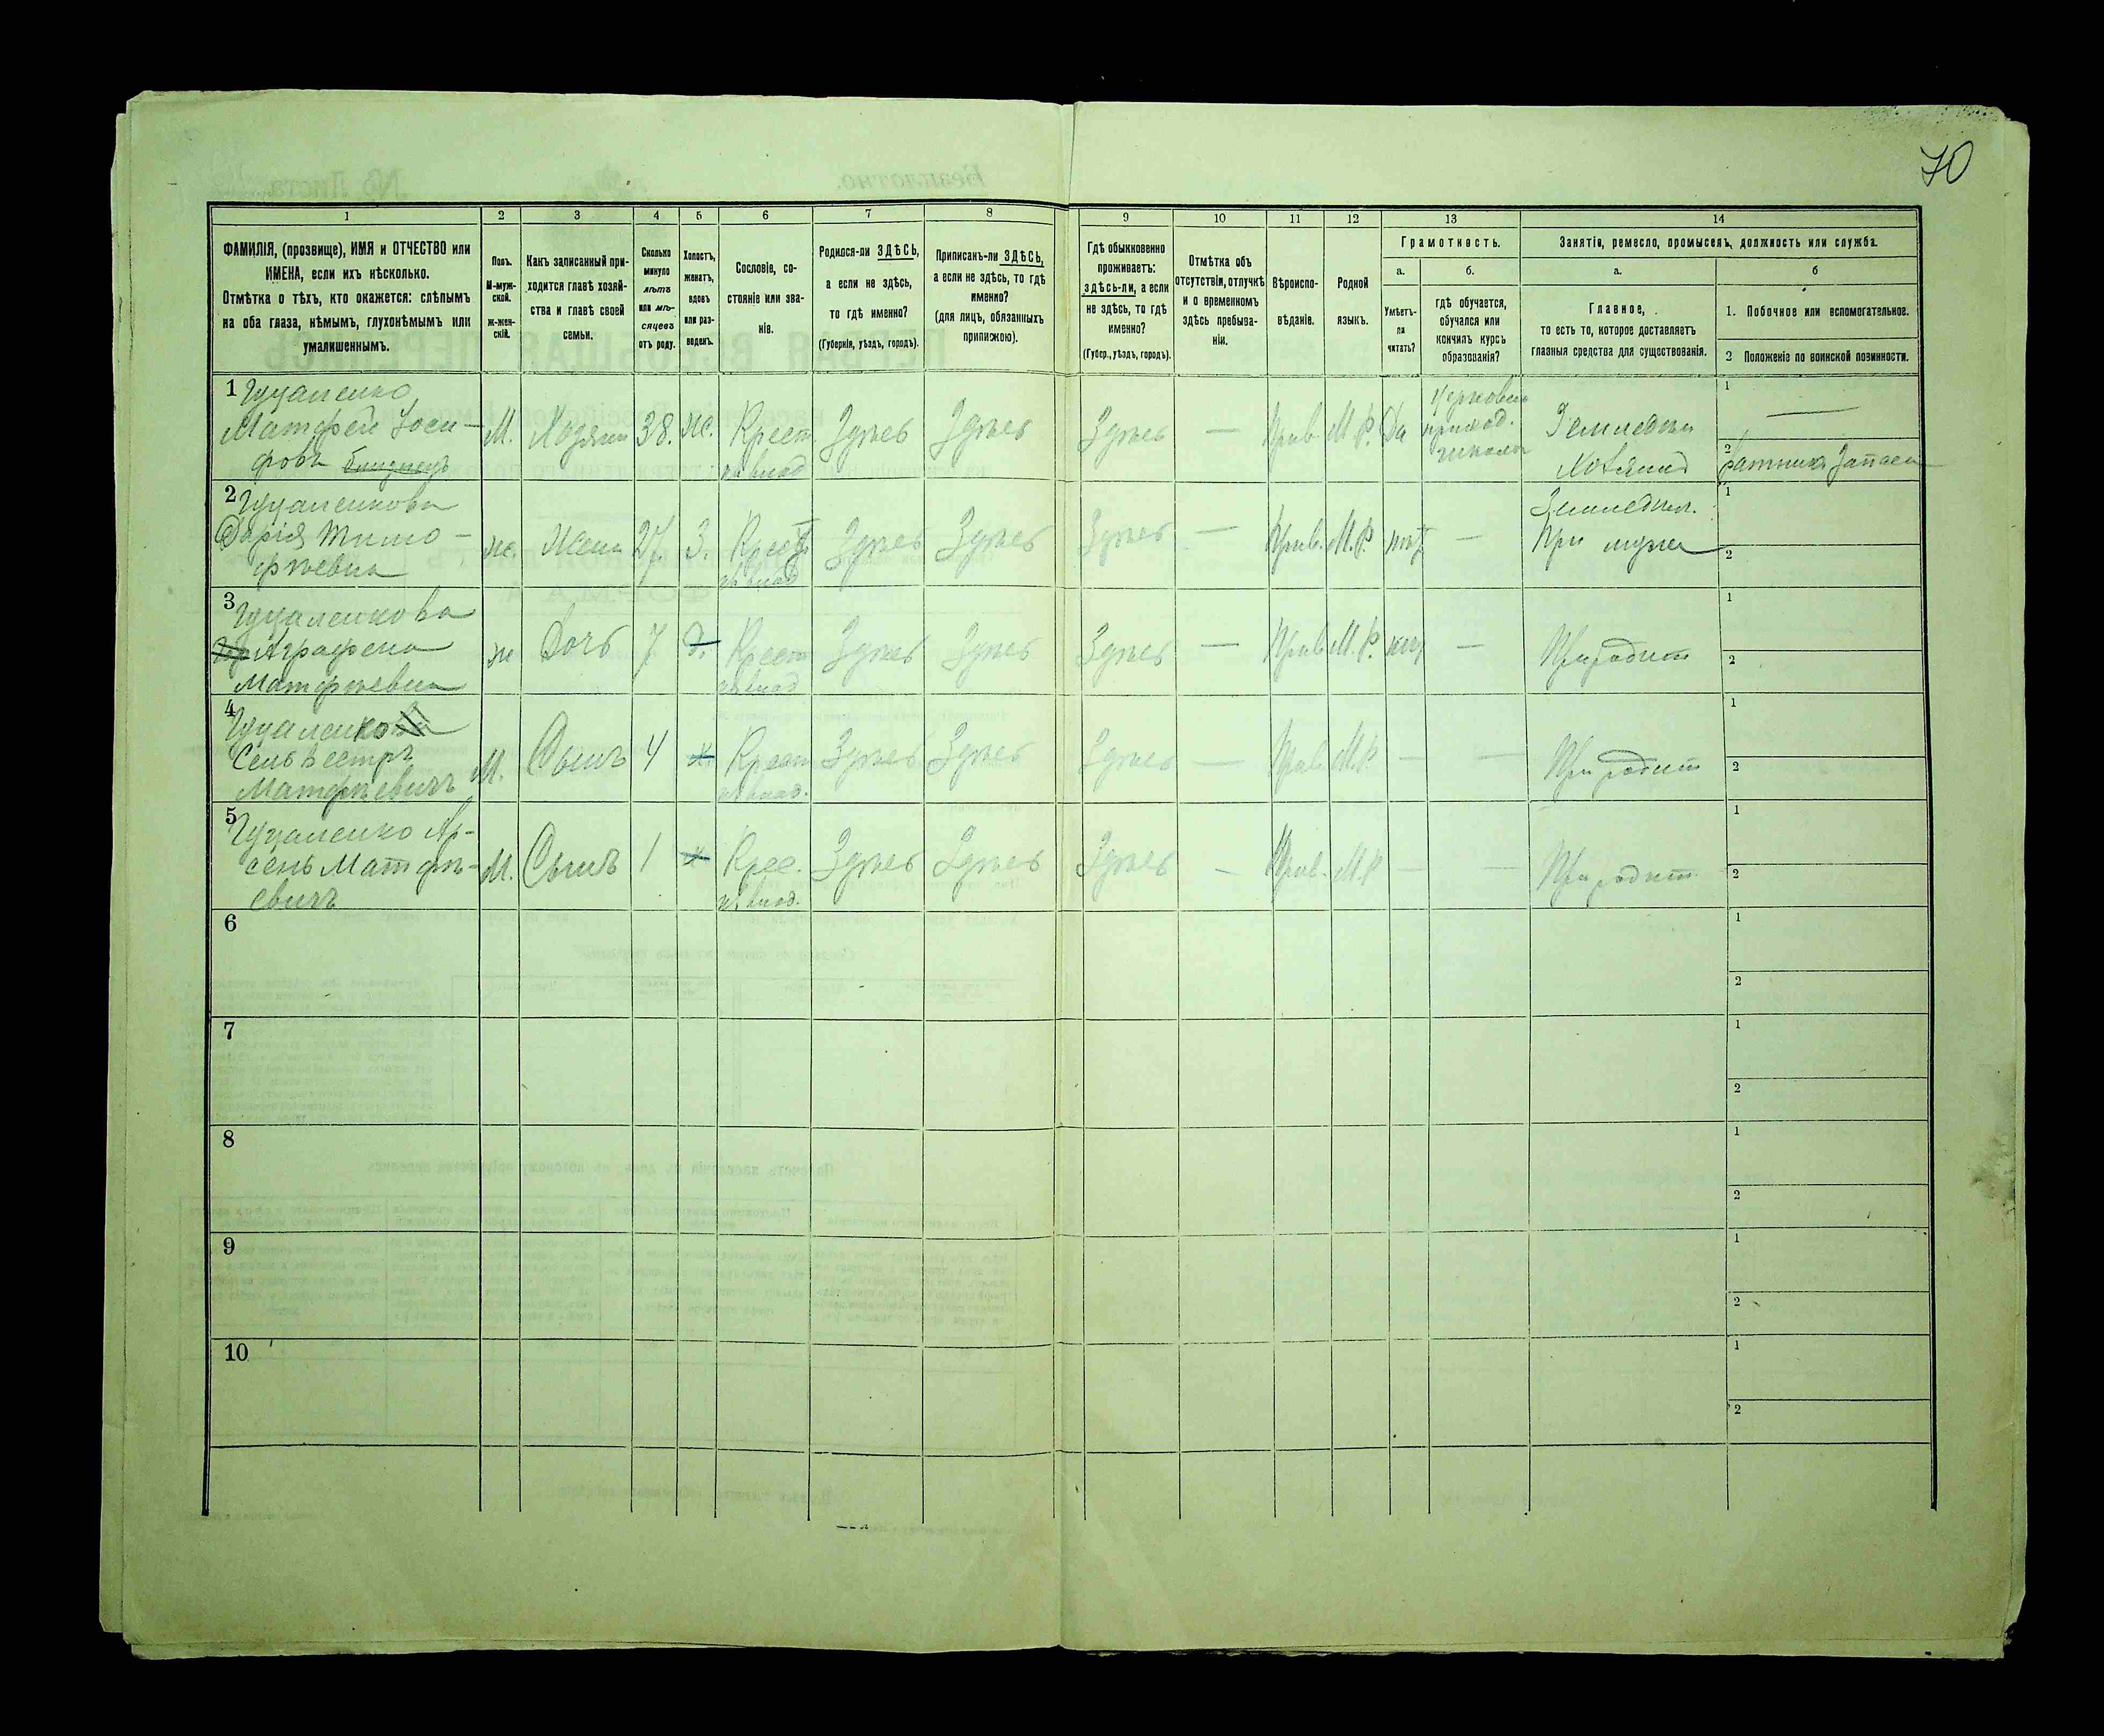 70
1 2 3 4 5 6 7 8 9 10 11 12 13 14
ФАМИЛІЯ, (прозвище), ИМЯ и ОТЧЕСТВО или
ИМЕНА, если ихъ нѣсколько.
Отмѣтка о тѣхъ, кто окажется: слѣпымъ
на оба глаза, нѣмымъ, глухонѣмымъ или
умалишеннымъ.
Полъ.
М-муж-
ской.
ж-жен-
скій.
Какъ записанный при-
ходится главѣ хозяй-
ства и главѣ своей
семьи.
Сколько
минуло
лѣтъ
или мѣ-
сяцевъ
отъ роду.
Холостъ,
женатъ,
вдовъ
или раз-
веденъ.
Сословіе, со-
стояніе или зва-
ніе.
Родился-ли ЗДѢСЬ,
а если не здѣсь,
то гдѣ именно?
(Губернія, уѣздъ, городъ).
Приписанъ-ли ЗДѢСЬ,
а если не здѣсь, то гдѣ
именно?
(для лицъ, обязанныхъ
припискою).
Гдѣ обыкновенно
проживаетъ:
здѣсь-ли, а если
не здѣсь, то гдѣ
именно?
(Губер., уѣздъ, городъ).
Отмѣтка объ
отсутствіи, отлучкѣ
и о временномъ
здѣсь пребыва-
ніи.
Вѣроиспо-
вѣданіе.
Родной
языкъ.
Грамотность.
а.
Умѣетъ-
ли
читать?
б.
гдѣ обучается,
обучался или
кончилъ курсъ
образованія?
Занятіе, ремесло, промыселъ, должность или служба.
а.
Главное,
то есть то, которое доставляетъ
главныя средства для существованія.
б
1. Побочное или вспомогательное.
2 Положеніе по воинской повинности.
1 Гуцаленко
Матфей Іоси-
фовъ
М. Хозяин 38. же. Крест. Здѣсь Здѣсь Здѣсь — Прав. М.Р. Да
приход.
школа
Земледѣл
Хозяин
1 —
2 Запаса
2 Гуцаленкова
Дарія Тимо-
фѣевна
же. Жена 27. З. Крест. Здѣсь Здѣсь Здѣсь — Прав. М.Р. нѣт —
Земледѣл.
При мужѣ
1
2
3 Гуцаленкова
Аграфена
Матфѣевна
ж Дочь 7 Крест Здѣсь Здѣсь Здѣсь — Прав М.Р. нѣт —
При родит
1
2
4 Гуцаленко
Сельвестръ
Матфѣевичъ
М. Сынъ 4 х. Крест Здѣсь Здѣсь Здѣсь — Прав М.Р — —
При родит
1
2
5 Гуцаленко Ар-
сень Матфѣ-
евичъ
М. Сынъ 1 х Крес. Здѣсь Здѣсь Здѣсь — Прав. М.Р — —
При родит.
1
2
6
1
2
7
1
2
8
1
2
9
1
2
10
1
2